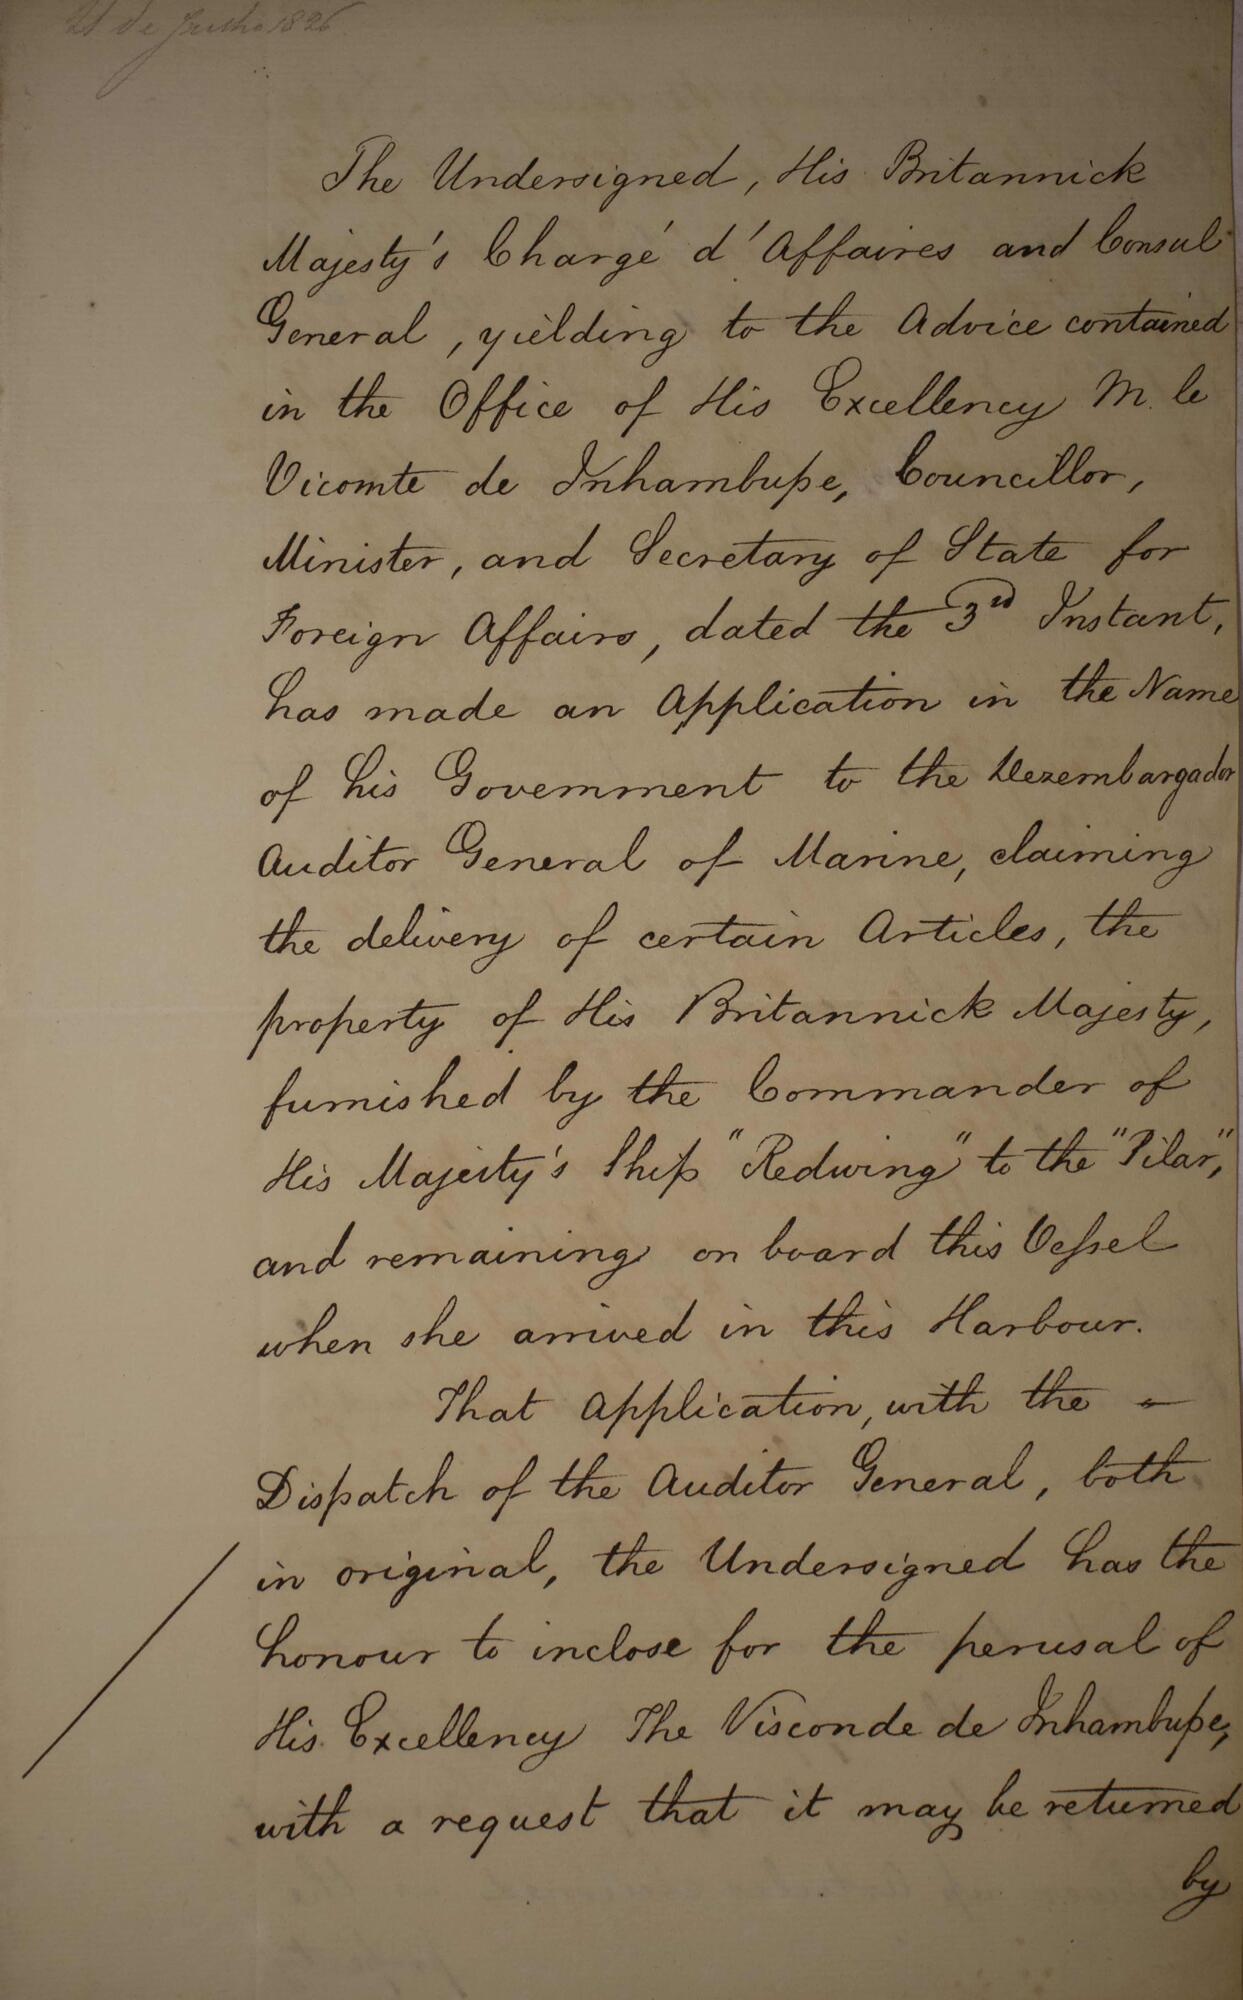 21 de Junho 1826
The Undersigned, His Britannick
Majesty's Chargé d'Affaires and Consul
General, yielding to the Advice contained
in the Office of His Excellency M. le
Vicomte de Inhambupe, Councillor,
Minister, and Secretary of State for
Foreign Affairs, dated the 3rd Instant,
has made an Application in the Name
of his Government to the Dezembargador
Auditor General of Marine, claiming
the delivery of certain Articles, the
property of His Britannick Majesty,
furnished by the Commander of
His Majesty's Ship "Redwing" to the "Pilar",
and remaining on board this Vessel
when she arrived in this Harbour.
That Application, with the -
Dispatch of the Auditor General, both
in original, the Undersigned has the
honour to inclose for the perusal of
His Excellency The Visconde de Inhambupe,
with a request that it may be returned
by